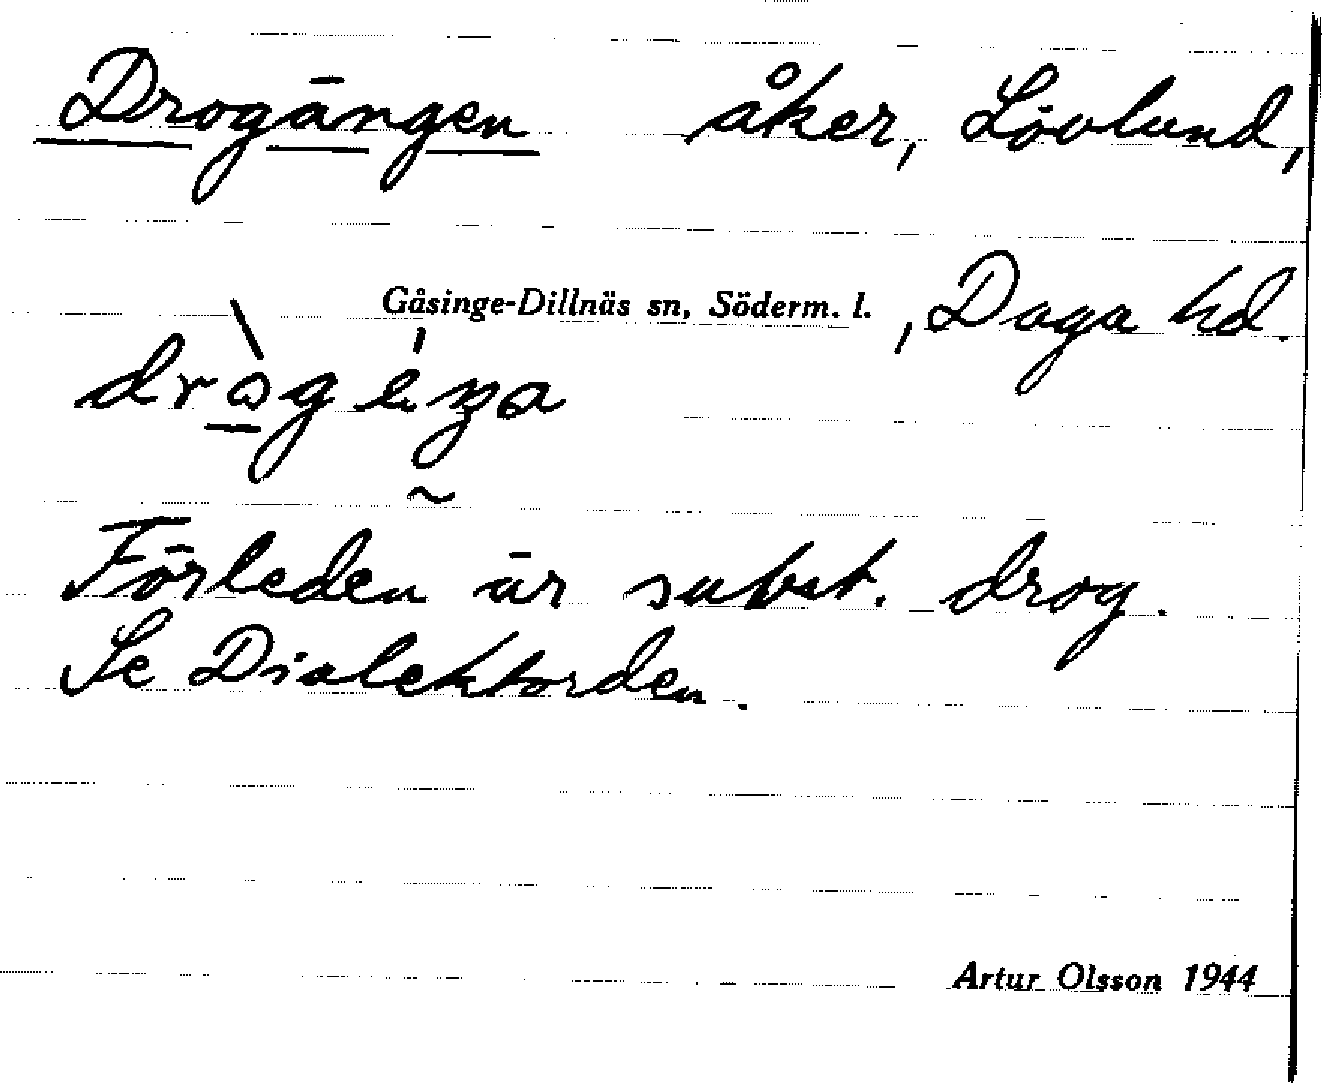 Drogängen åker, Lövlund,
Gåsinge-Dillnäs sn, Söderm. l. , Daga hd.
Förleden är subst. drog.
Se Dialektorden.
Artur Olsson 1944